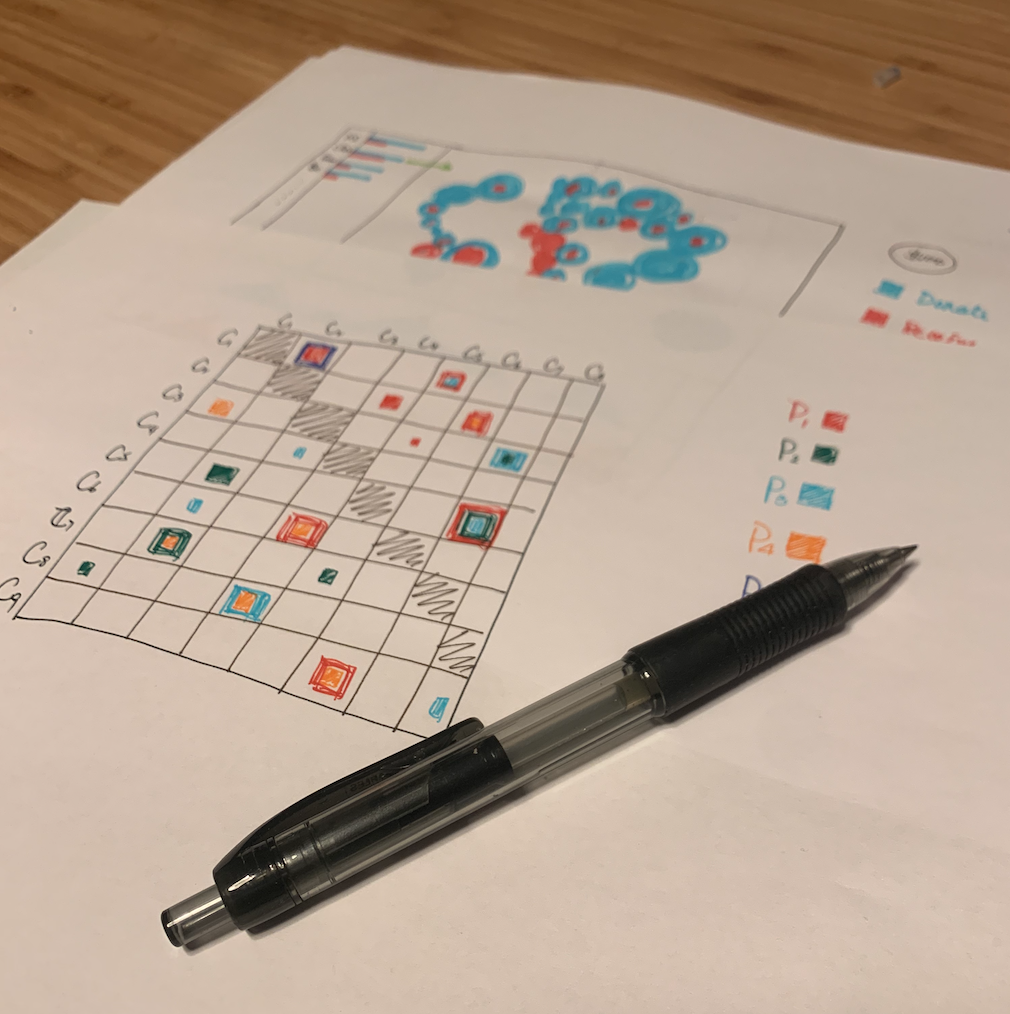 Donate
C₁ C₂ C₃ C₄ C₅ C₆ C₇ C₈
C₁
C₂
C₃
C₄
C₅
C₆
C₇
C₈
C₉
P₁
P₂
P₃
P₄
P